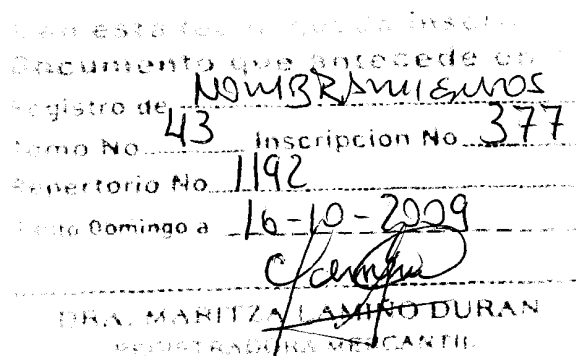 Con esta fecha queda inscrito
Documento que antecede en
Registro de NOMBRAMIENTOS
Tomo No. 43 Inscripcion No. 377
Repertorio No. 1192
Santo Domingo a 16-10-2009
DRA. MARITZA LAMIÑO DURAN
REGISTRADORA MERCANTIL